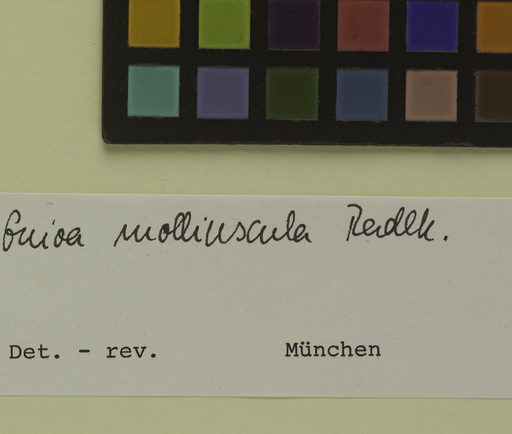 Guioa molliuscula Radlk.
Det. - rev. München